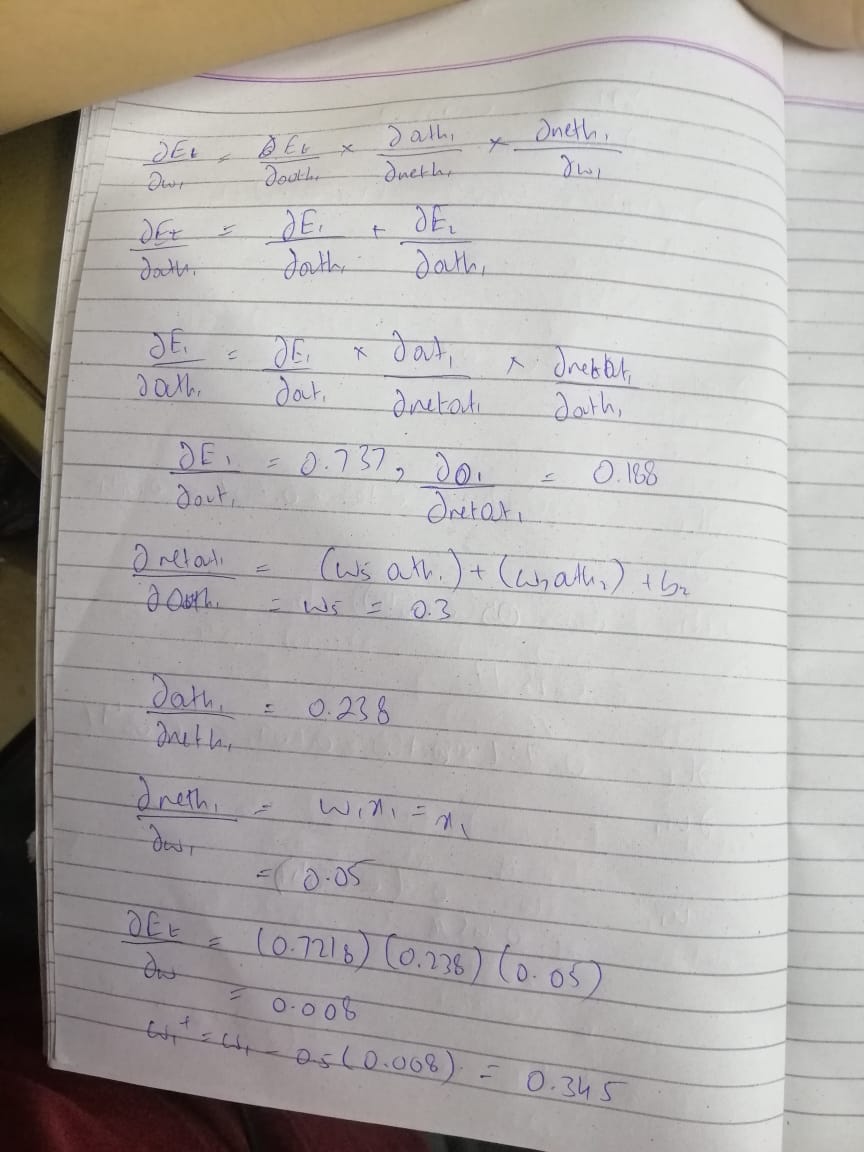 ∂Et/∂w₁ = ∂Et/∂outh₁ × ∂outh₁/∂neth₁ × ∂neth₁/∂w₁
∂Et/∂outh₁ = ∂E₁/∂outh₁ + ∂E₂/∂outh₁
∂E₁/∂outh₁ = ∂E₁/∂out₁ × ∂out₁/∂netout₁ × ∂netout₁/∂outh₁
∂E₁/∂out₁ = 0.737, ∂O₁/∂netout₁ = 0.188
∂netout₁/∂outh₁ = (w5 outh₁) + ( outh₂) + b₂
= w5 = 0.3
∂outh₁/∂neth₁ = 0.238
∂neth₁/∂w₁ = w₁x₁ = x₁
= 0.05
∂Et/∂w = (0.7218) (0.238) (0.05)
= 0.008
w₁⁺ = w₁ - 0.5(0.008) = 0.345